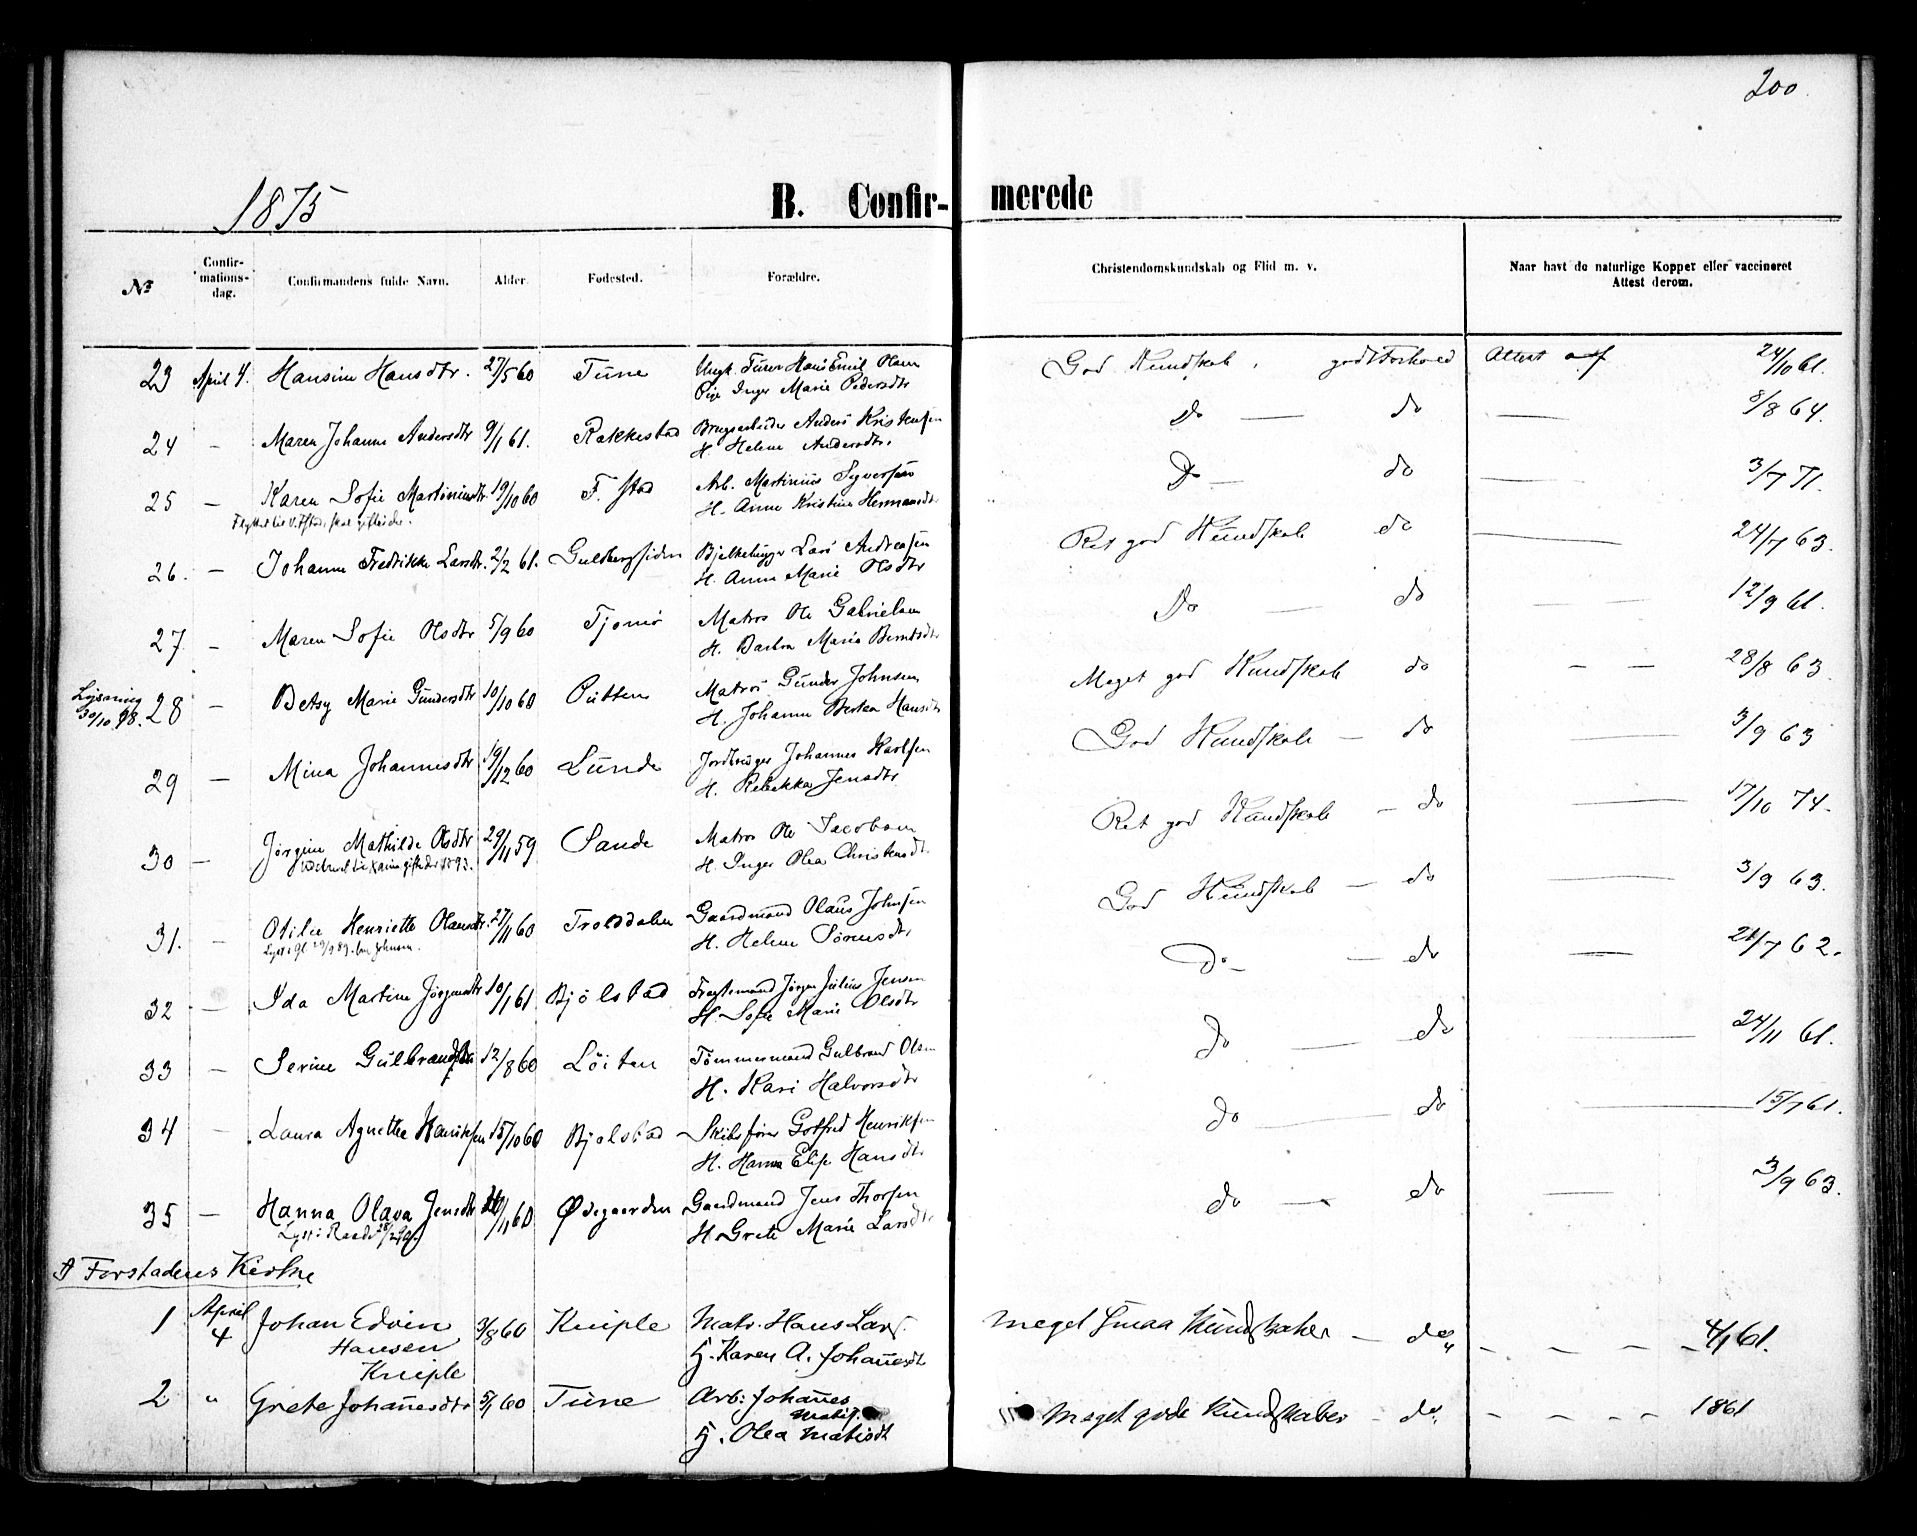 200
1875
B. Confir- merede
№ Confir-mations-dag. Confirmandens fulde Navn. Alder. Fødested. Forældre. Christendomskundskab og Flid m. v. Naar havt de naturlige Kopper eller vaccineret Attest derom.
23 April 4. Hansine Hansdtr. 27/5 60 Tune Ungk. Hans Emil Olsen God Kundskab, godt Forhold Attest af 24/10 61.
Pige Inger Marie Pedersdtr
24 - Maren Johanne Andersdtr 9/1 61. Rakkestad Brugsarbeider Anders Kristensen Do — do — 8/8 64.
H. Helene Andersdtr.
25 - Karen Sofie Martinusdtr. 19/10 60 F. stad Arb. Martinius Syversen Do - do — 3/7 71.
H. Anne Kristine Hermansdtr
26. - Johanne Fredrikke Larsdtr. 2/2 61. Guldbergsiden Bjelkehugger Lars Andreasen Ret god Kundskab do — 24/7 63.
H. Anne Marie Olsdtr
27 - Maren Sofie Olsdtr 5/9 60 Tjømø Matros Ole Gabrielsen Do — do — 12/9 61.
H. Barbra Maria Berntsdtr
Lysning 30/10 98. 28 - Betsy Marie Gundersdtr 10/10 60 Putten Matros Gunder Johnsen Meget god Kundskab do — — 28/8 63
H. Johanne Bertea Hansdtr
29 - Mina Johannesdtr 19/12 60 Lunde Jordbruger Johannes Karlsen God Kundskab — do — 3/9 63
H. Rebekka Jensdtr
30 - Jørgine Mathilde Olsdtr 29/11 59 Sande Matros Ole Jacobsen Ret god Kundskab — do — 17/10 74.
H. Inger Olea Christensdtr.
31. - Otilie Henriette Olausdtr. 27/11 60 Trolddalen Gaardmand Olaus Johnsen God Kundskab — do — 3/9 63.
H. Helene Sørensdtr
32 - Ida Martine Jørgensdtr 10/1 61 Bjølstad Jørgen Julius Jensen Do - — do — 21/7 62.
H. Sofie Marie Olsdtr
33 - Serine Gulbrandsdtr 12/8 60 Løiten Tømmermand Gulbrand Olsen do — do — 24/11 61.
H. Kari Halvorsdtr
34 - Laura Agnethe Henriksen 15/10 60 Bjølstad Skibsfører Gotfred Henriksen do — do — 15/7 61.
H. Hanna Elise Hansdtr.
35 - Hanna Olava Jensdtr /11 60 Ødegaarden Gaardmand Jens Thorsen do — do — 3/9 63.
H. Grete Marie Larsdtr
Forstadens Kirke
1 April 4 Johan Edvin 3/8 60 Kniple Matr. Hans Lars. meget smaa Kundskaber — do - - - - 4/1 61.
Hansen H. Karen A. Johanesdt
Kniple
2 " Grete Johanesdtr 5/1 60 Tune Arb: Johanes meget gode Kundskaber - do. - - - - 1861
Matis.
H. Olea Matisdt